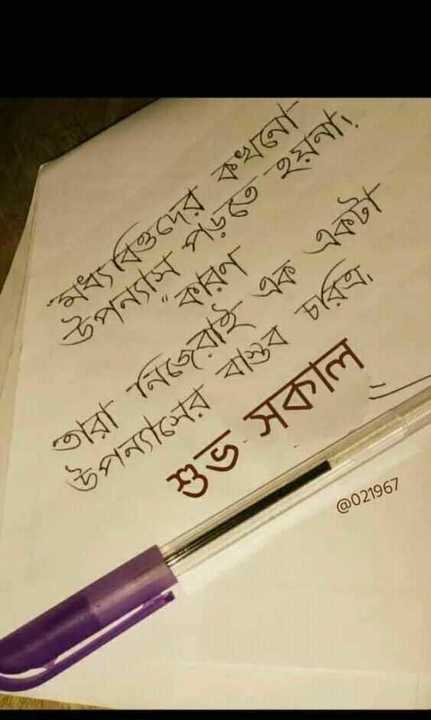 "মধ্যবিত্তদের কখনো
উপন্যাস পড়তে হয়না।
"কারণ
তারা নিজেরাই এক একটা
উপন্যাসের বাস্তব চরিত্র,
শুভ সকাল
@021967